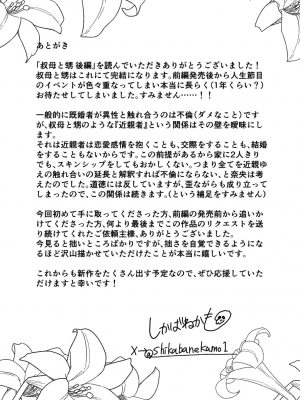 あとがき
「叔母と甥 後編」を読んでいただきありがとうございました!
叔母と甥はこれにて完結になります。前編発売後から人生節目
のイベントが色々重なってしまい本当に長らく(1年くらい?)
お待たせしてしまいました。すみません……!!
一般的に既婚者が異性と触れ合うのは不倫(ダメなこと)です
が、叔母と甥のような『近親者』という関係はその壁を曖昧にし
ます。
それは近親者は恋愛感情を抱くことも、交際をすることも、結婚
をすることもないからです。この前提があるから家に2人きり
でも、スキンシップをしてもおかしくない。つまり全てを近親ゆ
えの触れ合いの延長と解釈すれば不倫にならない、と奈央は考
えたのでした。道徳には反していますが、歪ながらも成り立って
しまったので、この関係は続きます。(という補足をすみません)
今回初めて手に取ってくださった方、前編の発売前から追いか
けてくださった方、何より最後までこの作品のリクエストを送
り続けてくれたご依頼主様、ありがとうございました。
今見ると拙いところばかりですが、拙さを自覚できるようにな
るほど沢山描かせていただけたことが本当に嬉しいです。
これからも新作をたくさん出す予定なので、ぜひ応援していた
だけますと幸いです!
しかばねかも
X→@shikabanekamo1